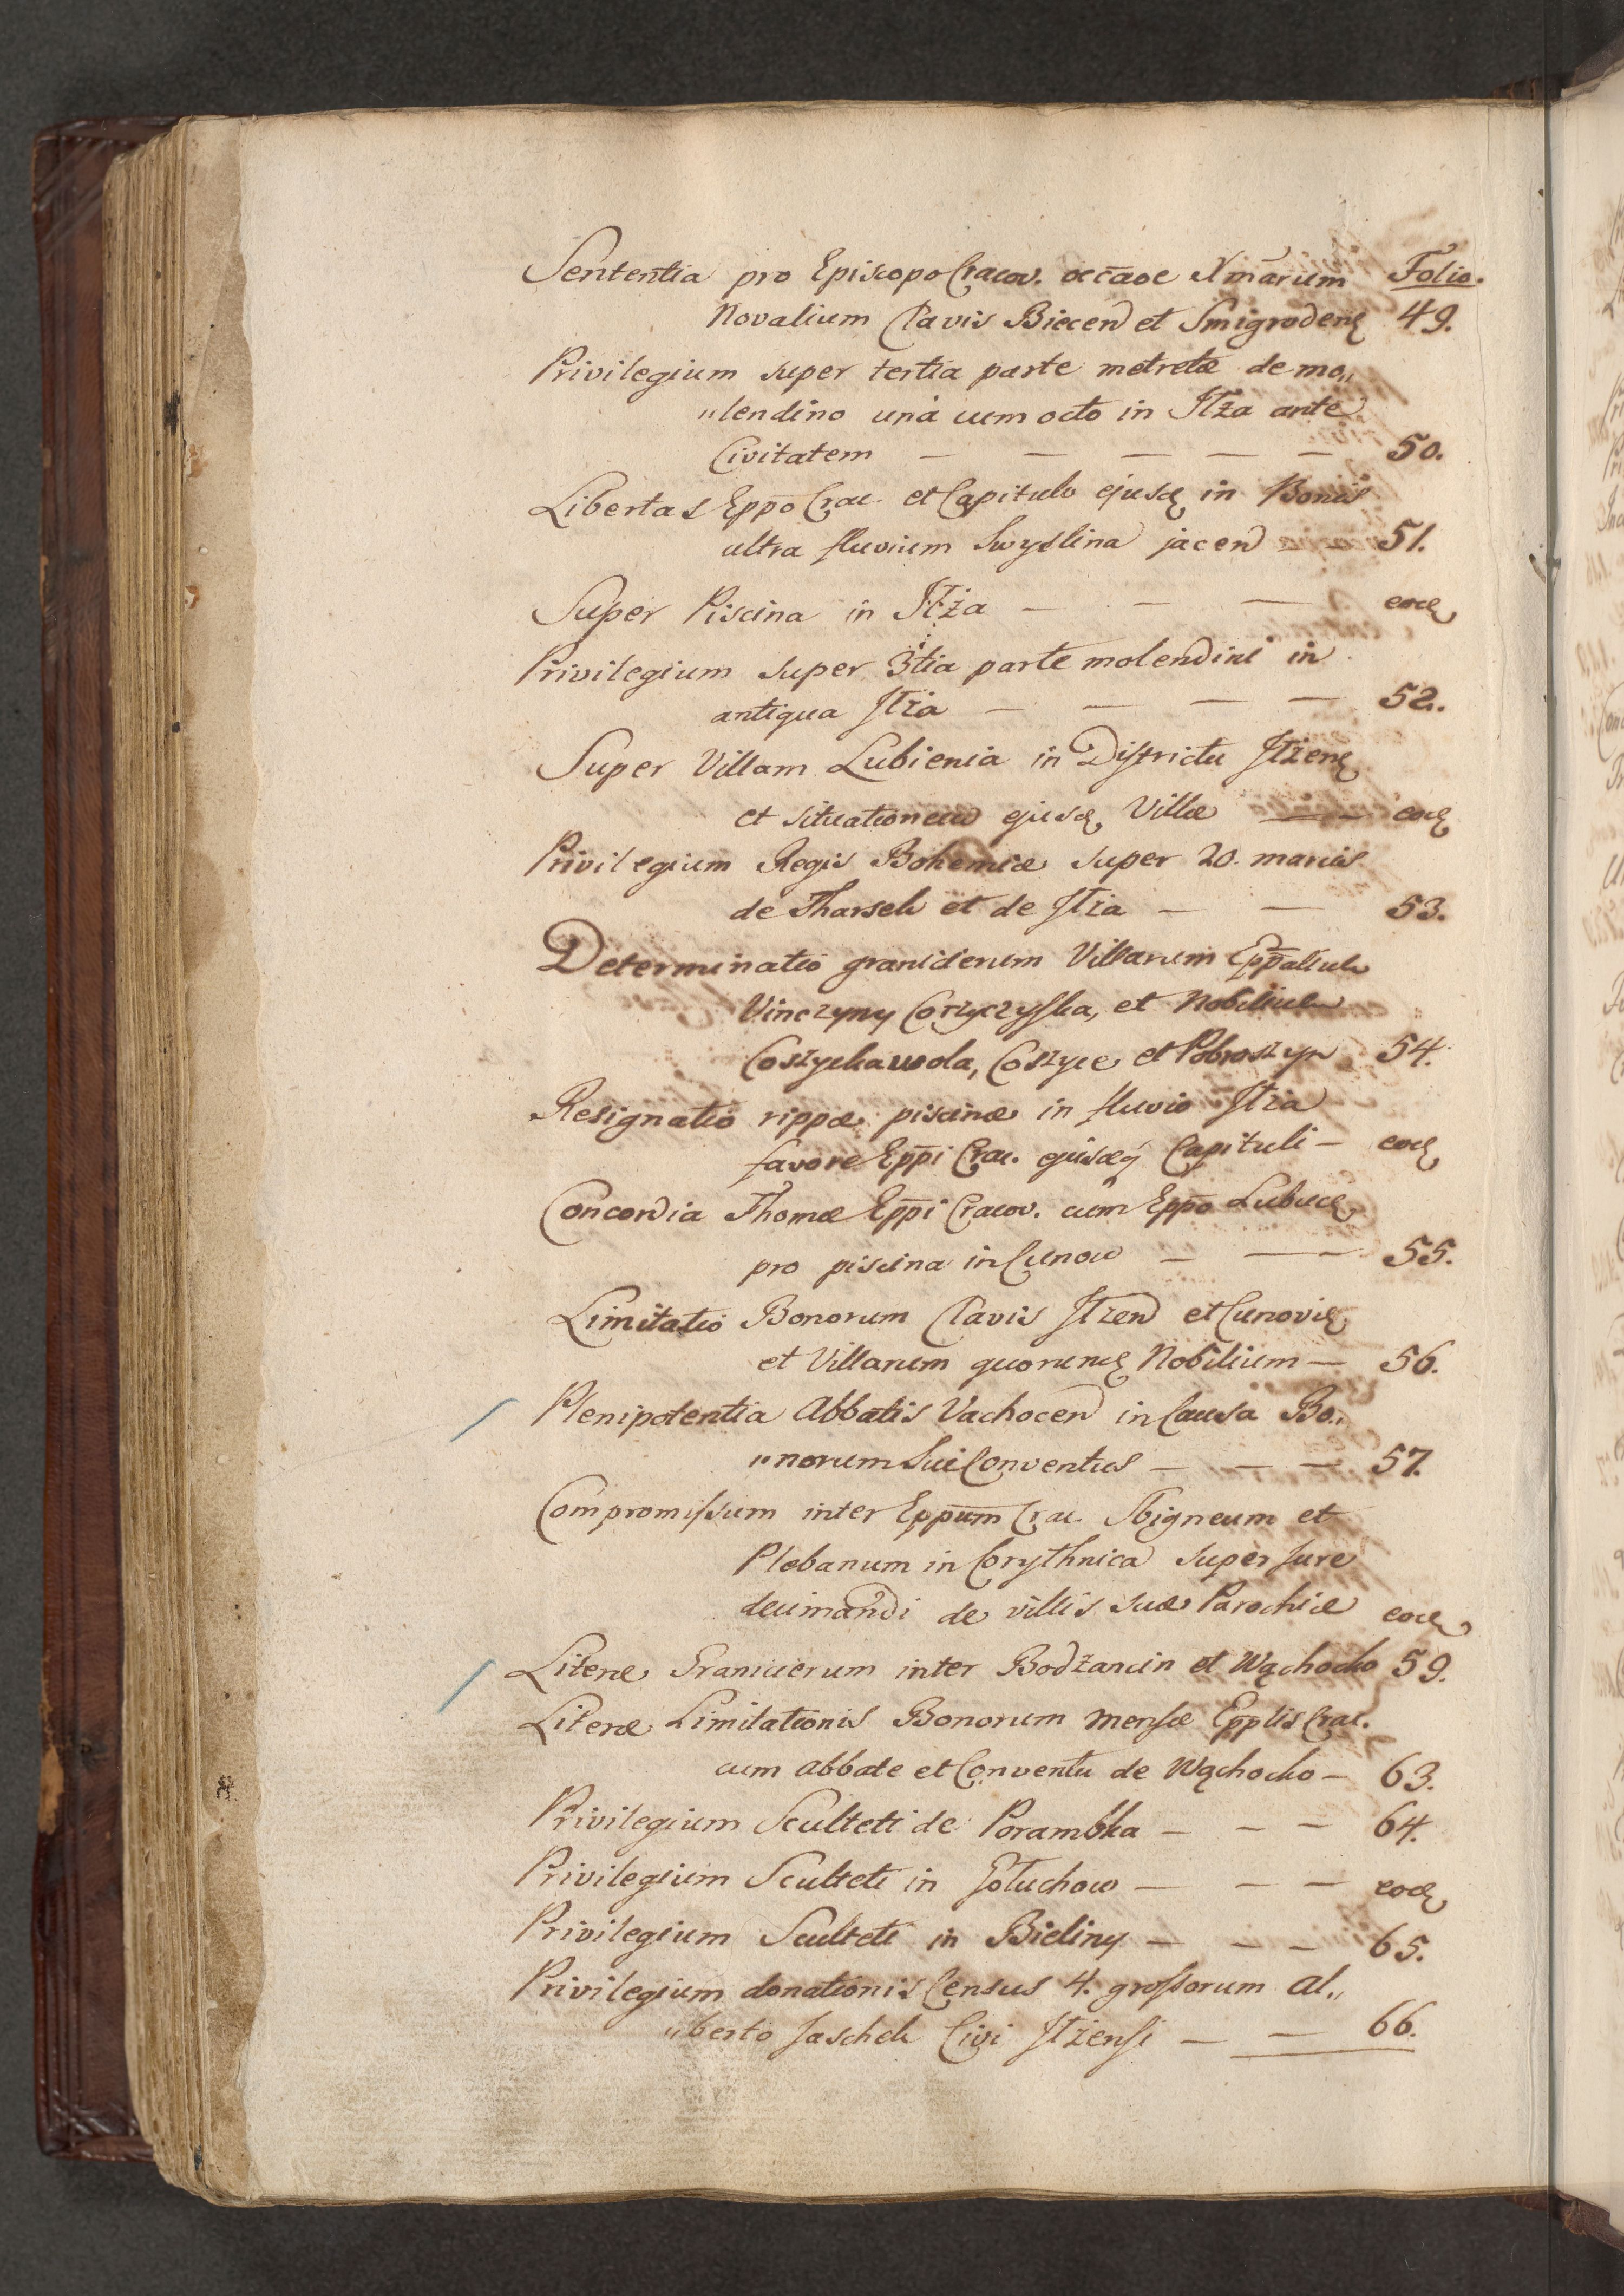 Sententia pro Episcopo Cracov. occāoe Xmārum Folio.
Novalium Clavis Biecen et Smigroden 49.
Privilegium super tertia parte metretæ de mo„
„lendino unà cum octo in Jłża ante
Civitatem — — — — — 50.
Libertas Eppo Crac. et Capitulo ejusd in Bonis
ultra fluvium Swyslina jacen — 51.
Super Piscina in Jłża — — — eod
Privilegium super 3tia parte molendini in
antiqua Jłża — — — — 52.
Super Villam Lubienia in Districtu Jłżen
et situationem ejusd Villæ — — eod
Privilegium Regis Bohemiæ super 20. marcis
de Tharsek et de Jłża — — 53.
Determinatio granicierum Villarum Eppalium
Vinczyny Corzyczyska, et Nobilium
Coszyckawola, Coszyce et Pobroszyn 54.
Resignatio rippæ piscinæ in fluvio Jłża
favore Eppi Crac. ejusdq Capituli — eod
Concordia Thomæ Eppi Cracov. cum Eppo Lubuc
pro piscina in Cunow — — — 55.
Limitatio Bonorum Clavis Jłżen et Cunovi
et Villarum quorund Nobilium — 56.
Plenipotentia Abbatis Vachocen in Causa Bo„
„norum Sui Conventus — — — 57.
Compromissum inter Eppum Crac. Sbigneum et
Plebanum in Corythnica super Jure
decimandi de villis suæ Parochiæ eod
Literæ Granicierum inter Bodzancin et Wąchocko 59.
Literæ Limitationis Bonorum Mensæ Epplis Crac.
cum Abbate et Conventu de Wąchocko — 63.
Privilegium Sculteti de Porambka — — — 64.
Privilegium Sculteti in Gołuchow — — — eod
Privilegium Sculteti in Bieliny — — — 65.
Privilegium donationis Census 4. grossorum Al„
„berto Jaschek Civi Jłżensi — — 66.